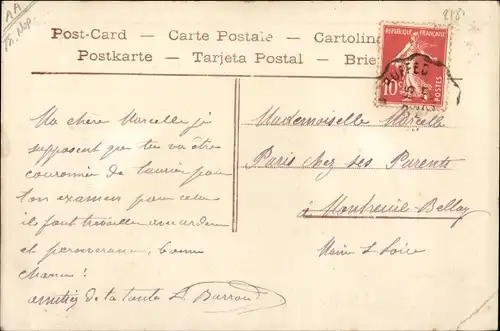 AA
Th. Nap
218
Post-Card — Carte Postale — Cartolina
Postkarte — Tarjeta Postal — Brie
REPUBLIQUE FRANÇAISE
10c POSTES
RUFFEC
Ma chère Marcelle je
supposent que tu va être
couronnée de laurier pour
ton examen pour cela
il faut travailler avec ardeur
et perseverance, bonne
chance!
amitiés de ta tante L. Barraud
Mademoiselle Marcelle
Paris chez ses Parents
à Montreuil-Bellay
Maine & Loire